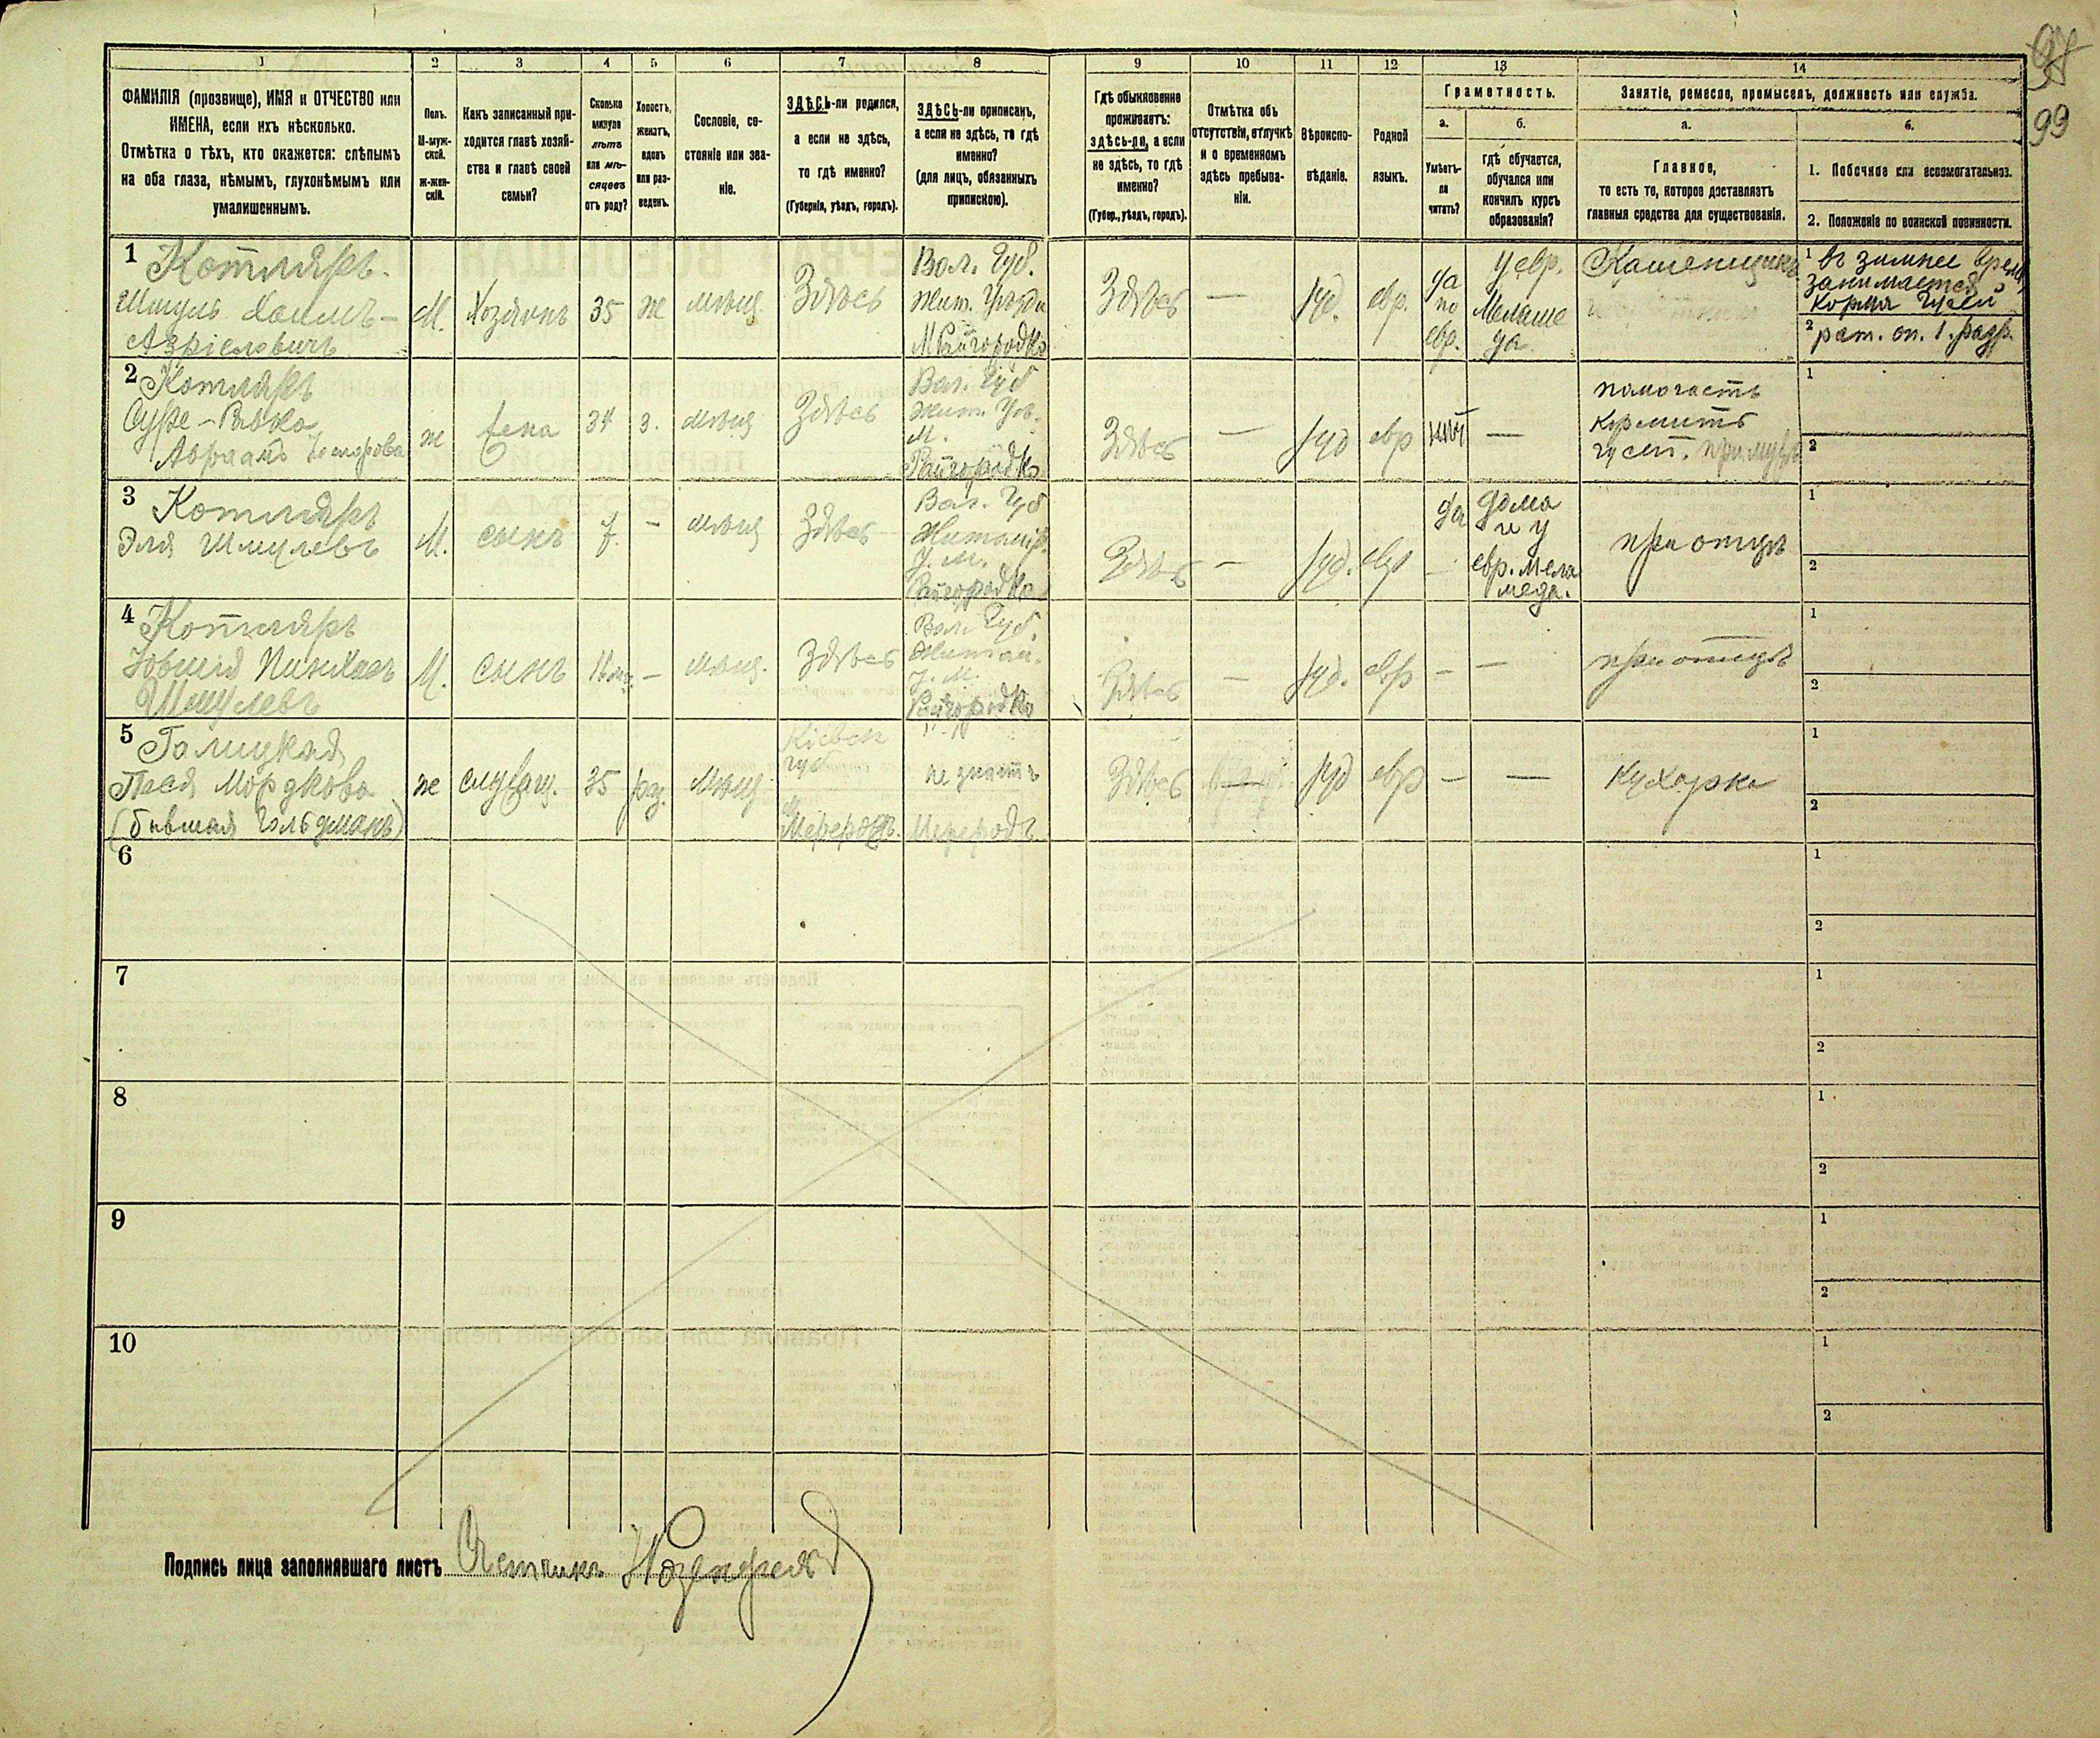 97
99
1 2 3 4 5 6 7 8 9 10 11 12 13 14
ФАМИЛІЯ (прозвище), ИМЯ и ОТЧЕСТВО или
ИМЕНА, если ихъ нѣсколько.
Отмѣтка о тѣхъ, кто окажется: слѣпымъ
на оба глаза, нѣмымъ, глухонѣмымъ или
умалишеннымъ.
Полъ.
М-муж-
ской.
Ж-жен-
скій.
Какъ записанный при-
ходится главѣ хозяй-
ства и главѣ своей
семьи?
Сколько
минуло
лѣтъ
или мѣ-
сяцевъ
отъ роду?
Холостъ,
женатъ,
вдовъ
или раз-
веденъ.
Сословіе, со-
стояніе или зва-
ніе.
ЗДѢСЬ-ли родился,
а если не здѣсь,
то гдѣ именно?
(Губернія, уѣздъ, городъ).
ЗДѢСЬ-ли приписанъ,
а если не здѣсь, то гдѣ
именно?
(для лицъ, обязанныхъ
припискою).
Гдѣ обыкновенно
проживаетъ:
здѣсь-ли, а если
не здѣсь, то гдѣ
именно?
(Губер., уѣздъ, городъ).
Отмѣтка объ
отсутствіи, отлучкѣ
и о временномъ
здѣсь пребыва-
ніи.
Вѣроиспо-
вѣданіе.
Родной
языкъ.
Грамотность.
а.
Умѣетъ-
ли
читать?
б.
гдѣ обучается,
обучался или
кончилъ курсъ
образованія?
Занятіе, ремесло, промыселъ, должность или служба.
а.
Главное,
то есть то, которое доставляетъ
главныя средства для существованія.
б.
1. Побочное или вспомогательное.
2. Положеніе по воинской повинности.
1
Котляръ
Шмуль Хаимъ-
Азріеловичъ
М.
Хозяинъ
35
ж
мѣщ.
Здѣсь
Вол. Губ.
Жит. Уѣзда
М Райгородка
Здѣсь
—
іуд.
евр.
да
по
евр.
у евр.
Меламе
да
Каменщикъ
1 въ зимнее время
занимается
кормя гусей
2 рат. оп. 1. разр.
2
Котляръ
Суре-Ривка
ж
жена
34
з.
мѣщ
Здѣсь
Вол. Губ
Жит. Уѣз.
М.
Райгородка
Здѣсь
—
іуд
евр
нѣт
—
помогаетъ
кормить
гусей. при мужѣ
1
2
3
Котляръ
Эля Шмулевъ
М.
сынъ
7.
-
мѣщ
Здѣсь
Вол. Губ
Житомір.
У. М.
Райгородка
Здѣсь
—
іуд.
евр
да
—
дома
и у
евр. мела
меда.
при отцѣ
1
2
4
Котляръ
Іовшія Пинхасъ
Шмулевъ
М.
сынъ
—
мѣщ.
Здѣсь
Вол. Губ.
Житом.
У. М.
Райгородка
Здѣсь
—
іуд.
евр
—
—
при отцѣ
1
2
5
Галицкая
Пася Мордкова
(бывшая Гольдманъ)
ж
служащ.
35
раз.
Мѣщ
Кіевск
губ
не знаетъ
Здѣсь
іуд
евр
—
—
Кухарка
1
2
6
1
2
7
1
2
8
1
2
9
1
2
10
1
2
Подпись лица заполнявшаго листъ Счетчикъ